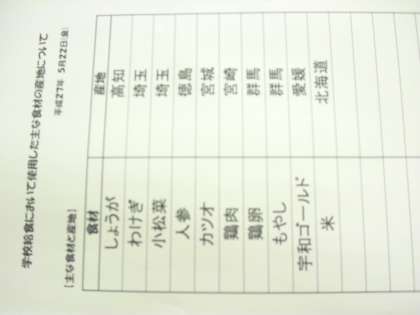 学校給食において使用した主な食材の産地について
平成27年 5月22日(金)
[主な食材と産地]
食材 産地
しょうが 高知
わけぎ 埼玉
小松菜 埼玉
人参 徳島
カツオ 宮城
鶏肉 宮崎
鶏卵 群馬
もやし 群馬
宇和ゴールド 愛媛
米 北海道